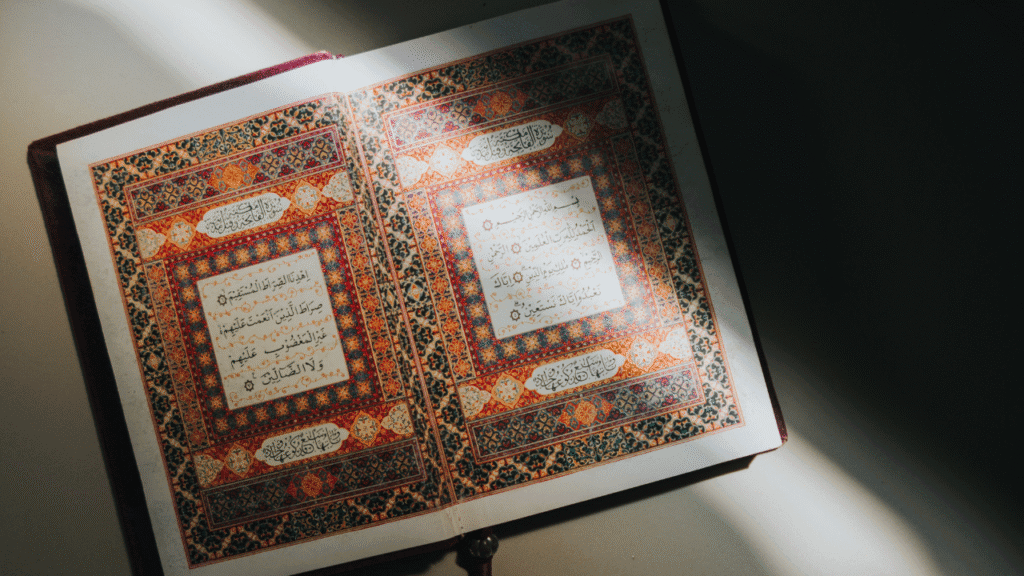 سُورَةُ الْفَاتِحَةِ
بِسْمِ اللَّهِ الرَّحْمَٰنِ الرَّحِيمِ
الْحَمْدُ لِلَّهِ رَبِّ الْعَٰلَمِينَ الرَّحْمَٰنِ
الرَّحِيمِ مَٰلِكِ يَوْمِ الدِّينِ إِيَّاكَ
نَعْبُدُ وَإِيَّاكَ نَسْتَعِينُ
سُورَةُ الْفَاتِحَةِ
اهْدِنَا الصِّرَاطَ الْمُسْتَقِيمَ
صِرَاطَ الَّذِينَ أَنْعَمْتَ عَلَيْهِمْ
غَيْرِ الْمَغْضُوبِ عَلَيْهِمْ
وَلَا الضَّالِّينَ